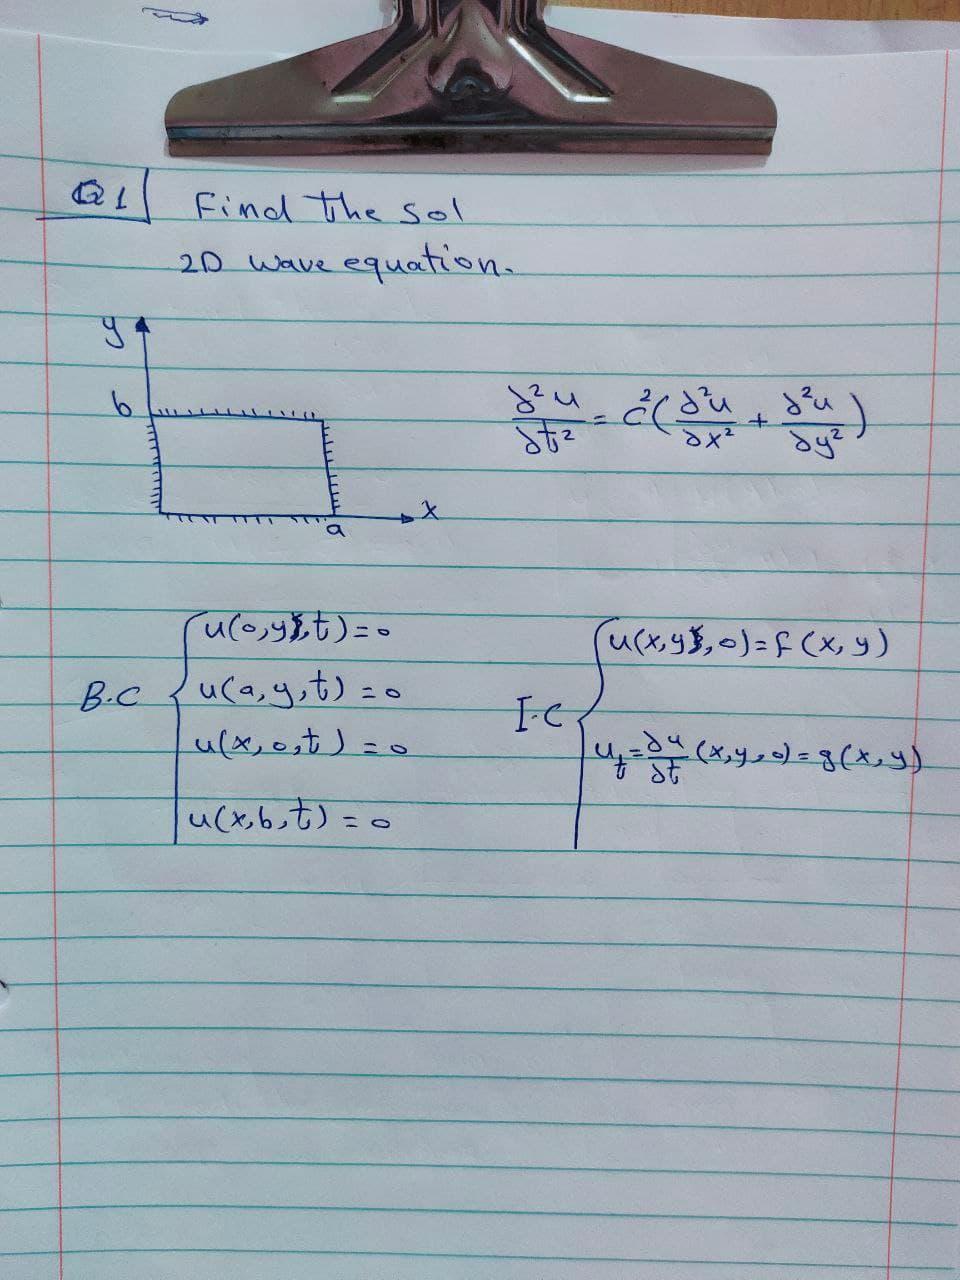 Q1 Find the sol
2D wave equation.
y
b
a
x
∂²u/∂t² = c²(∂²u/∂x² + ∂²u/∂y²)
B.C
u(0,y,t)=0
u(a,y,t)=0
u(x,0,t)=0
u(x,b,t)=0
I.C
u(x,y,0)=f(x,y)
u_t=∂u/∂t(x,y,0)=g(x,y)